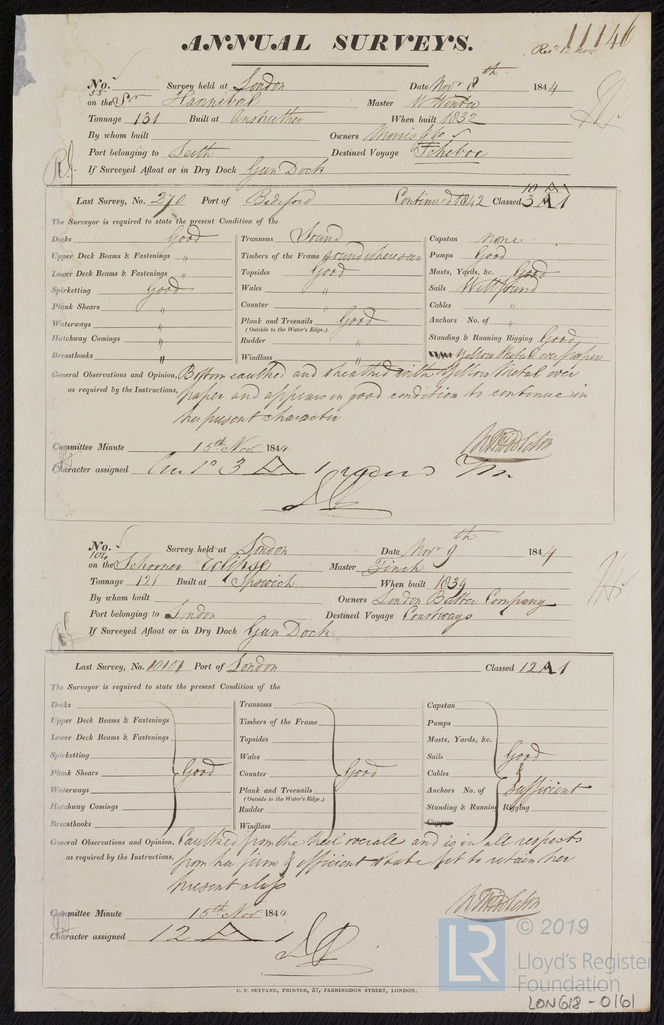 11146
ANNUAL SURVEYS.
No. 55 Survey held at London Date Nov 8th 1844
on the Sr Hannibal Master W
Tonnage 131 Built at Anstruther When built 1832
By whom built Owners Morris & Co
Port belonging to Leith Destined Voyage
If Surveyed Afloat or in Dry Dock Gun Dock
Last Survey, No. 270 Port of Bideford Continued 1842 Classed 3 A 1
The Surveyor is required to state the present Condition of the
Decks Good Transoms Sound Capstan none
Upper Deck Beams & Fastenings " Timbers of the Frame sound where seen Pumps Good
Lower Deck Beams & Fastenings " Topsides Good Masts, Yards, &c. Good
Spirketting Good Wales " Sails Well found
Plank Shears " Counter " Cables "
Waterways " Plank and Treenails Good Anchors No. of "
(Outside to the Water's Edge.)
Hatchway Comings " Rudder " Standing & Running Rigging Good
Breasthooks " Windlass " Yellow Metal over paper
General Observations and Opinion, Bottom caulked and sheathed with Yellow Metal over
as required by the Instructions, paper and appears in good condition to continue in
her present character
Committee Minute 15th Nov 1844
Character assigned 3 A 1
No. 104 Survey held at London Date Nov 9th 1844
on the Schooner Eclipse Master Finch
Tonnage 121 Built at Ipswich When built 1834
By whom built Owners London Company
Port belonging to London Destined Voyage Coastways
If Surveyed Afloat or in Dry Dock Gun Dock
Last Survey, No. 10101 Port of London Classed 12 A 1
The Surveyor is required to state the present Condition of the
Decks Transoms Capstan
Upper Deck Beams & Fastenings Timbers of the Frame Pumps
Lower Deck Beams & Fastenings Topsides Masts, Yards, &c.
Spirketting Wales Sails Good
Plank Shears Good Counter Good Cables &
Waterways Plank and Treenails Anchors No. of Sufficient
(Outside to the Water's Edge.)
Hatchway Comings Rudder Standing & Running Rigging
Breasthooks Windlass Copper
General Observations and Opinion, Caulked from the keel overall and is in all respects
as required by the Instructions, from her firm & efficient state fit to retain her
present class
Committee Minute 15th Nov 1844
Character assigned 12 A 1
C. F. SEYFANG, PRINTER, 57, FARRINGDON STREET, LONDON.
© 2019
LR
Lloyd's Register
Foundation
LON618-0161